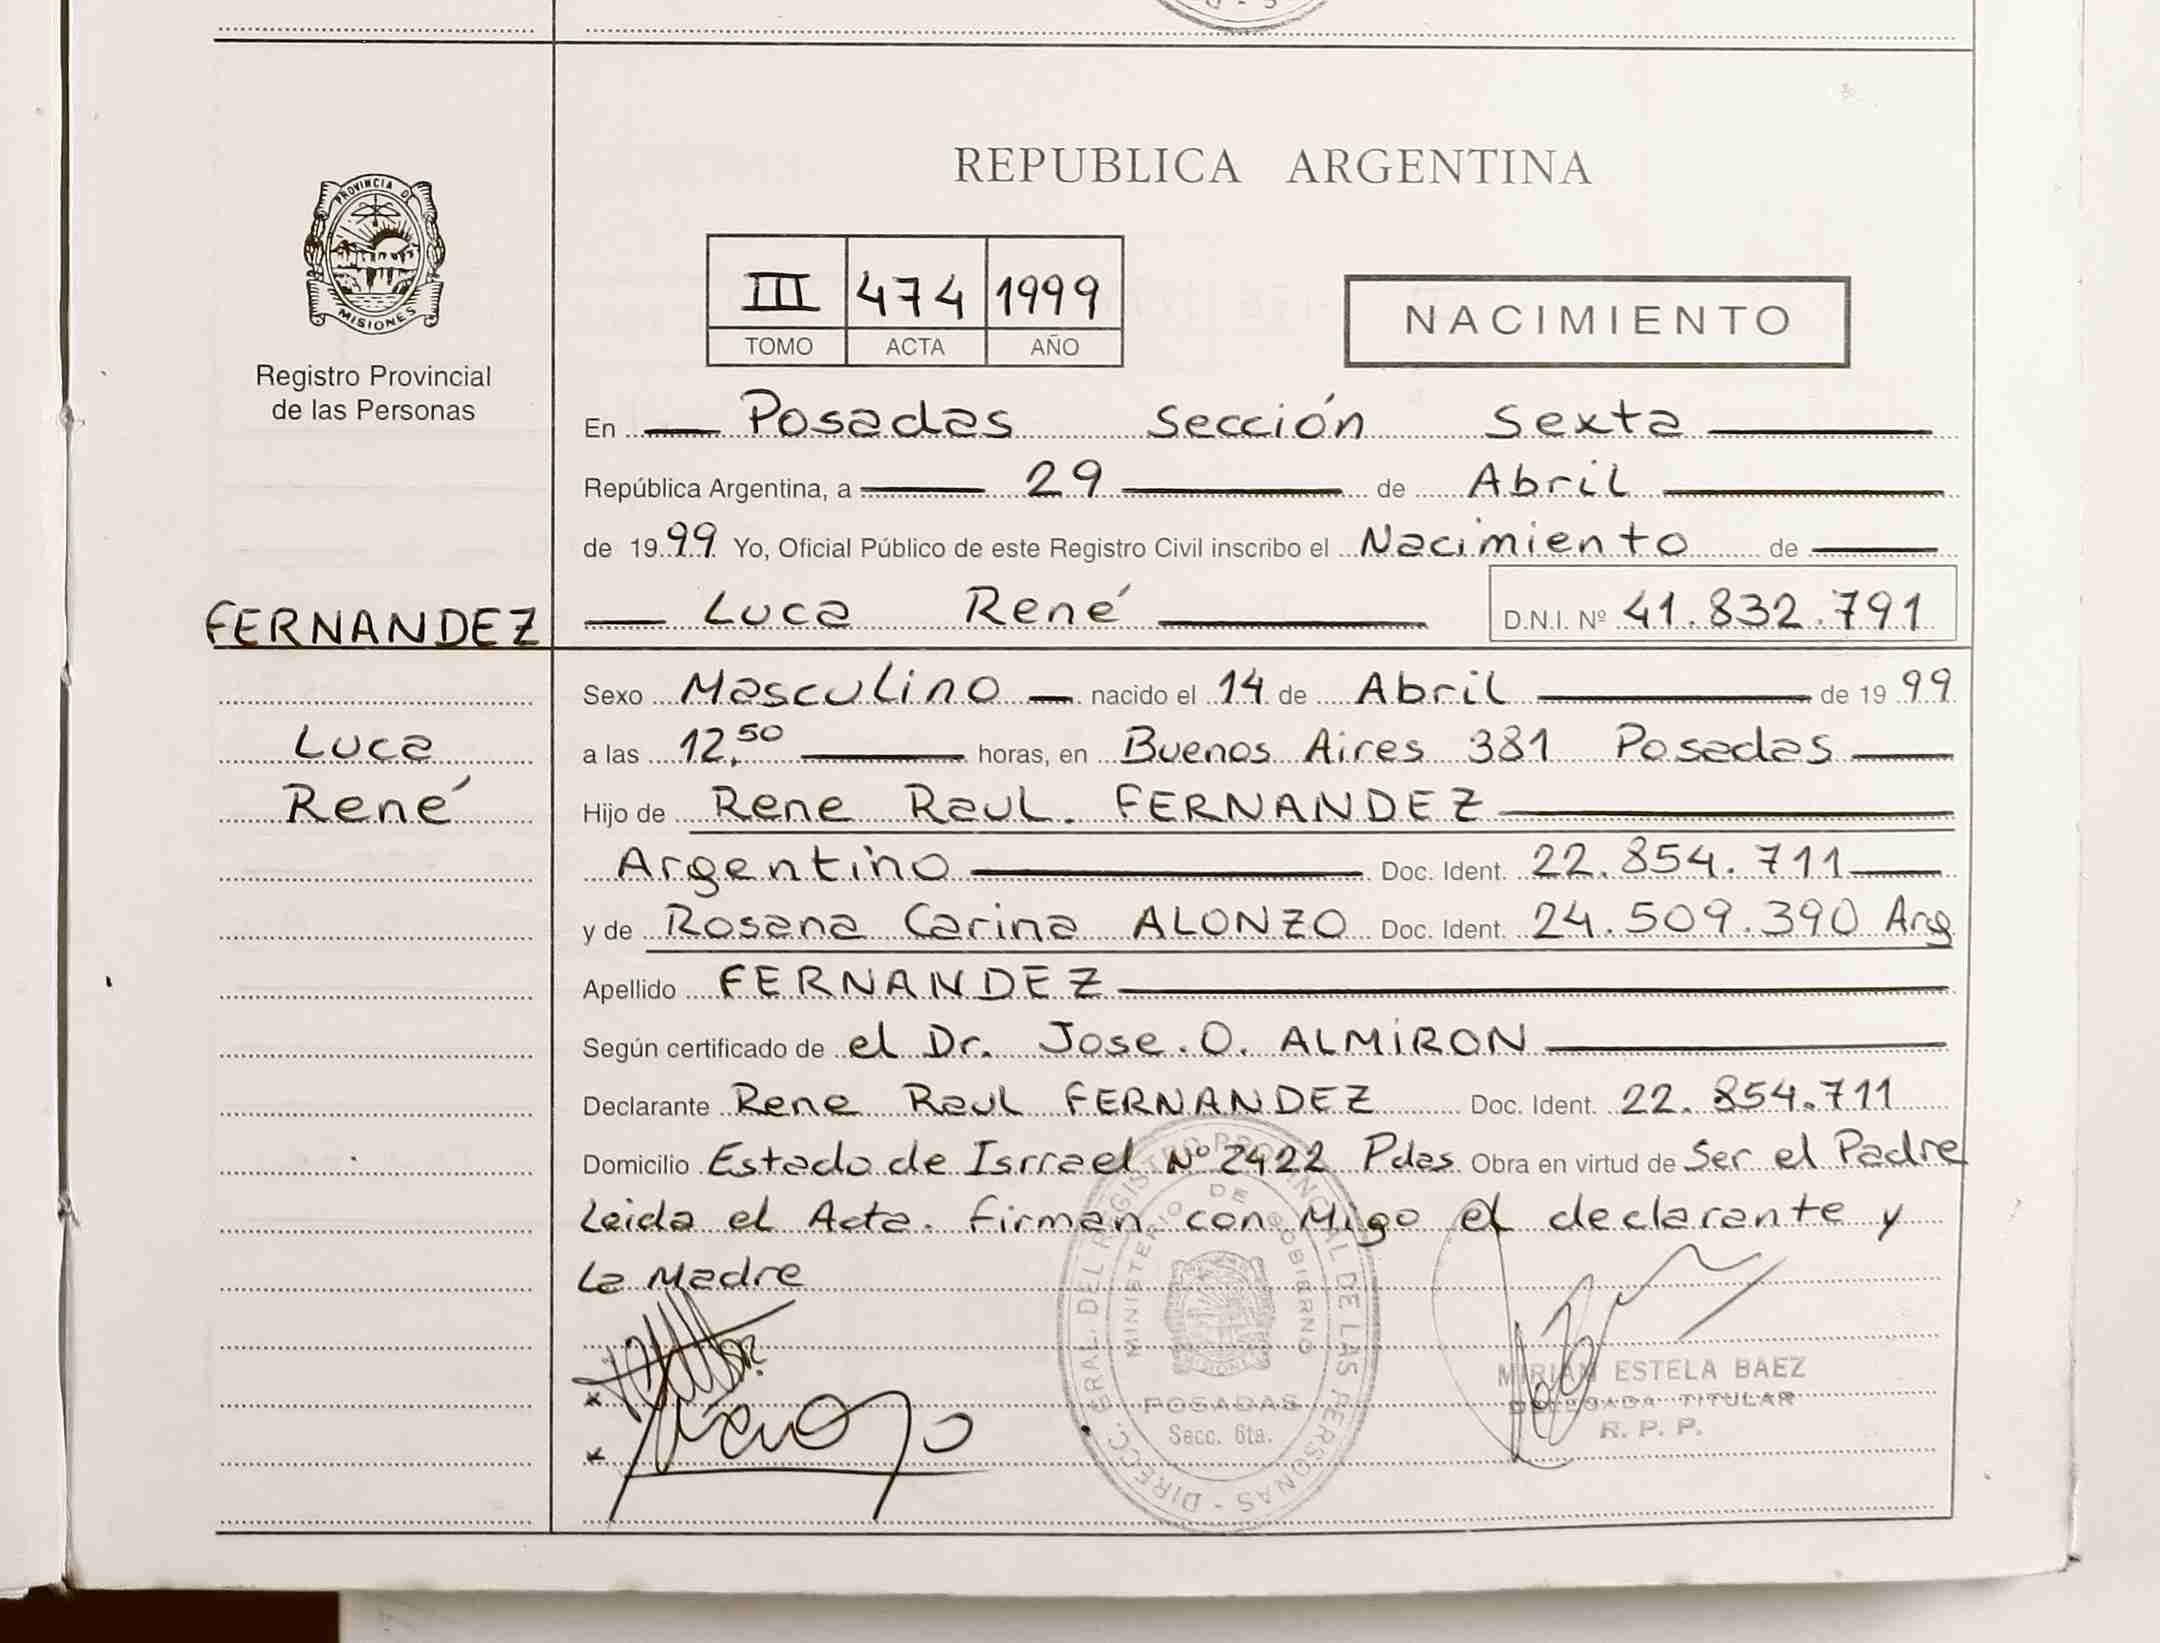 REPUBLICA ARGENTINA
PROVINCIA DE
MISIONES
Registro Provincial
de las Personas
III 474 1999
TOMO ACTA AÑO
NACIMIENTO
En Posadas Sección Sexta
República Argentina, a 29 de Abril
de 1999 Yo, Oficial Público de este Registro Civil inscribo el Nacimiento de
FERNANDEZ
Luca René
D.N.I. Nº 41.832.791
Sexo Masculino nacido el 14 de Abril de 1999
Luca
René
a las 12,50 horas, en Buenos Aires 381 Posadas
Hijo de Rene Raul. FERNANDEZ
Argentino Doc. Ident. 22.854.711
y de Rosana Carina ALONZO Doc. Ident. 24.509.390 Arg
Apellido FERNANDEZ
Según certificado de el Dr. Jose.O. ALMiRON
Declarante Rene Raul FERNANDEZ Doc. Ident. 22.854.711
Domicilio Estado de Isrrael Nº 2422 Pdas. Obra en virtud de Ser el Padre
Leida el Acta. Firman con Migo el declarante y
La Madre
DIRECC. GRAL. DEL REGISTRO PROVINCIAL DE LAS PERSONAS
MINISTERIO DE GOBIERNO
POSADAS
Secc. 6ta.
MIRIAN ESTELA BAEZ
DELEGADA TITULAR
R. P. P.